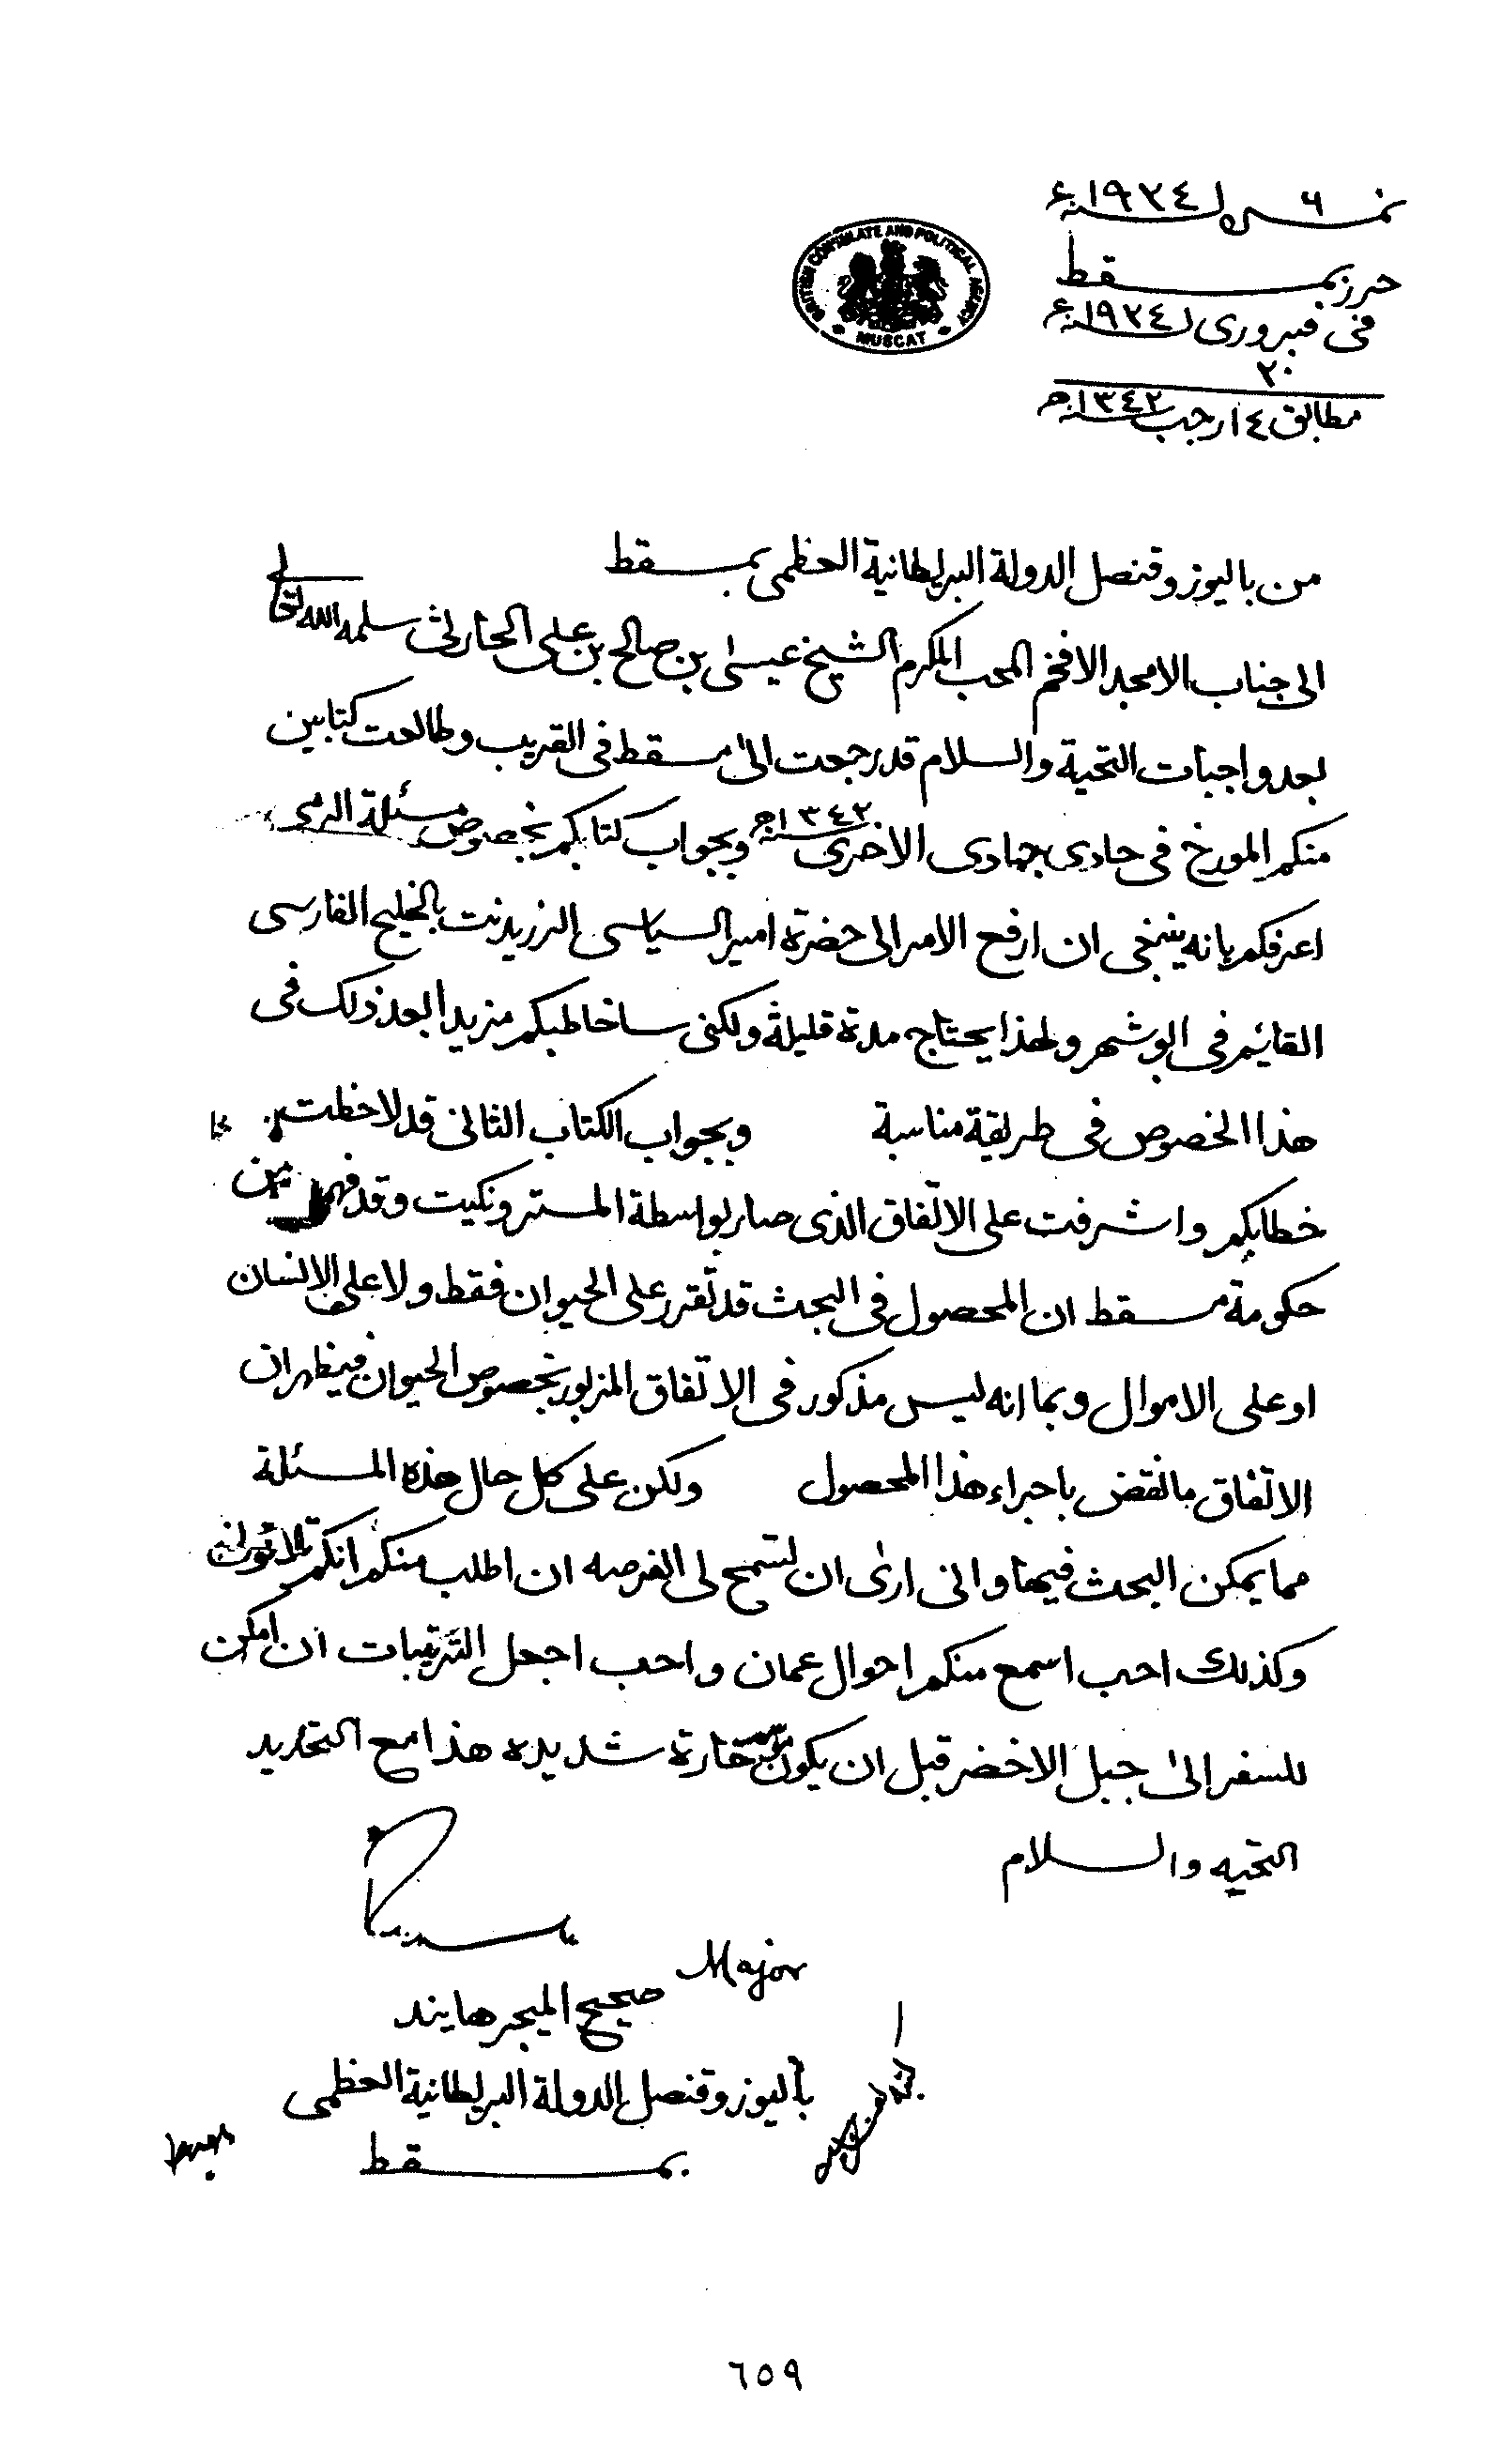 نمبر ٦ لسنة ١٩٢٤ء
حرر بمسقط
في ٢٠ فبروري سنة ١٩٢٤ء
مطابق ١٤ رجب سنة ١٣٤٢ھ
BRITISH CONSULATE AND POLITICAL AGENCY
MUSCAT
من باليوز وقنصل الدولة البريطانية العظمى بمسقط
الى جناب الامجد الافخم المحب المكرم الشيخ عيسىٰ بن صالح بن علي الحارثي سلمه الله تعالى
بعد واجبات التحية والسلام قد رجعت الىٰ مسقط في القريب وطالعت كتابين
منكم المورخ في حادي جمادى الاخرى سنة ١٣٤٢ھ وبجواب كتابكم بخصوص مسئلة الرمي
اعرفكم بانه ينبغي ان ارفع الامر الى حضرة امير السياسي الرزيدنت بالخليج الفارسي
القائيم في ابوشهر ولهذا يحتاج مدة قليلة ولكني ساخاطبكم مزيدا بعد ذلك في
هذا الخصوص في طريقة مناسبة وبجواب الكتاب الثاني قد لاحظت
خطابكم واشرفت على الاتفاق الذي صار بواسطة المستر ونكيت وقد فهم بين
حكومة مسقط ان المحصول في البحث قد تقرر على الحيوان فقط ولا على الانسان
او على الاموال وبما انه ليس مذكور في الاتفاق المزبور بخصوص الحيوان فيظهر ان
الاتفاق ما نقض باجراء هذا المحصول ولكن على كل حال هذه المسئلة
مما يمكن البحث فيها واني ارىٰ ان تسمح لي الفرصه ان اطلب منكم انكم تلاقوني
وكذلك احب اسمع منكم احوال عمان واحب اجعل الترتيبات ان امكن
للسفر الىٰ جبل الاخضر قبل ان يكون حارة شديده هذا مع التجديد
التحيه والسلام
Major
صحيح الميجر هايند
باليوز وقنصل الدولة البريطانية العظمى
بمسقط
٦٥٩